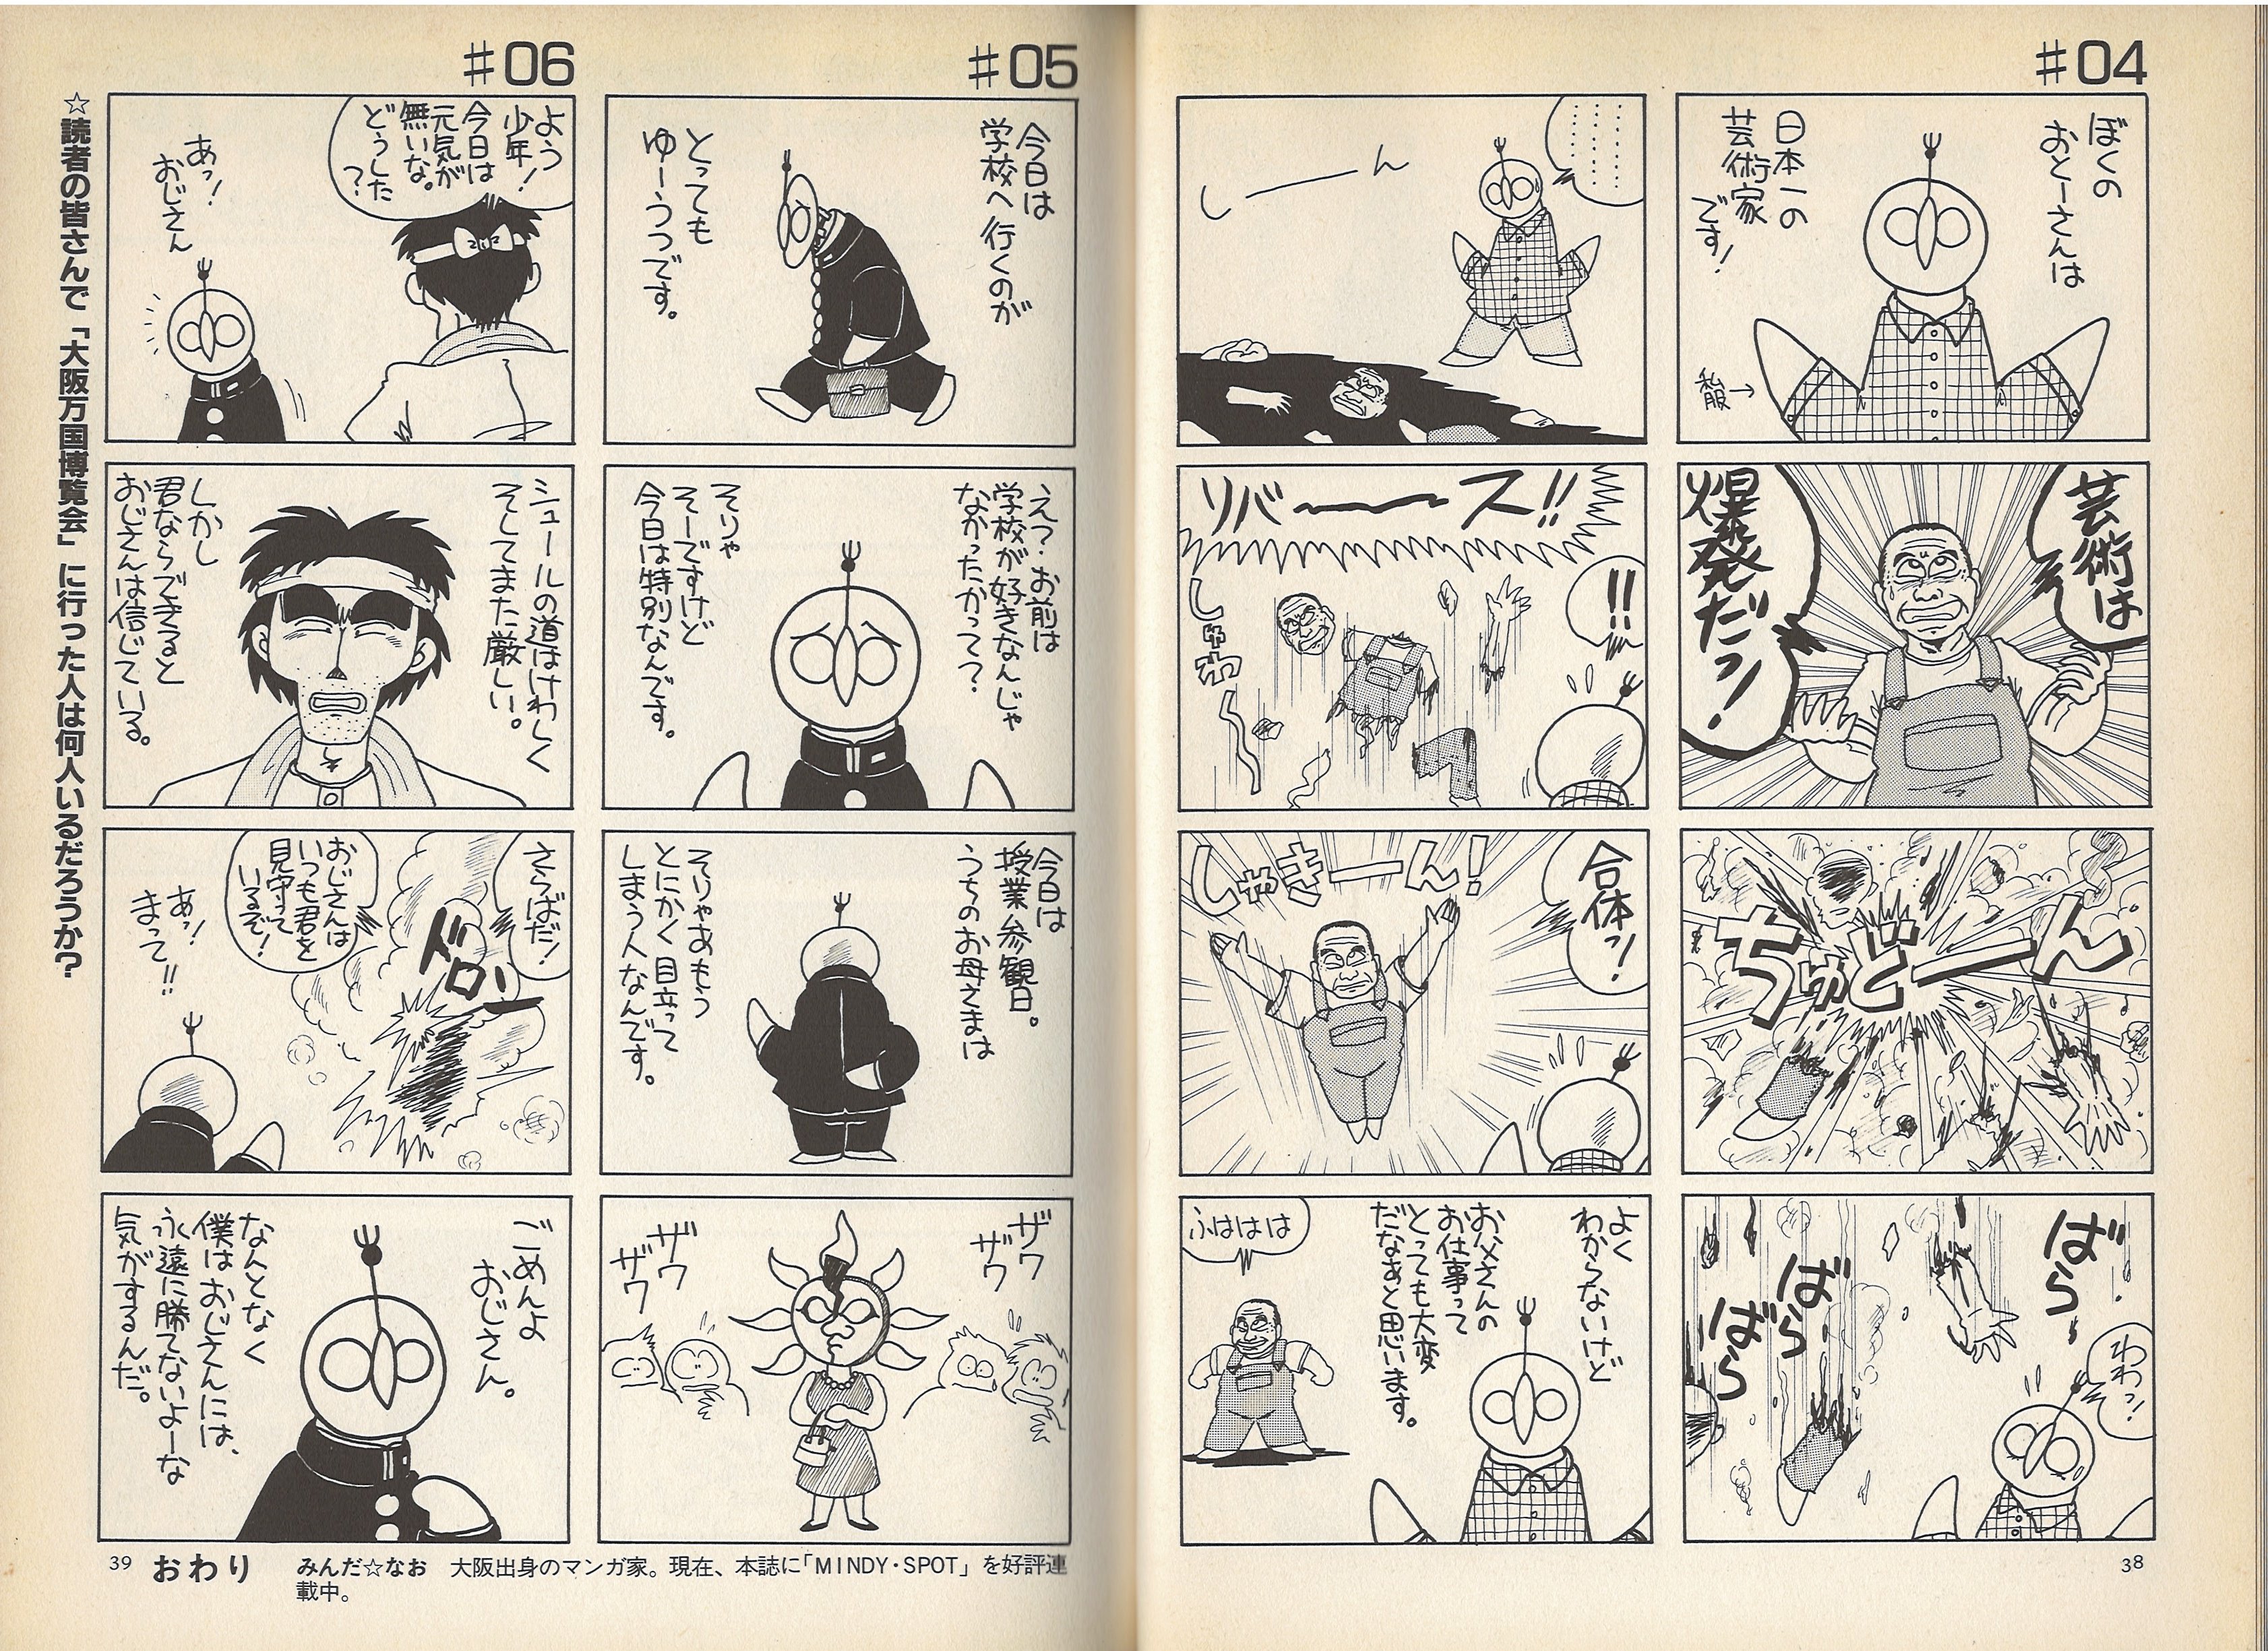 #04
ぼくの
おとーさんは
日本一の
芸術家
です!
私服→
芸術は
爆発だっ!
ちゅどーん
ばら
ばら
ばら
わわっ!
………
………
しーーん
リバーース!!
!!
しゅわ
合体っ!
しゃきーーん!
よく
わからないけど
お父さんの
お仕事って
とっても大変
だなあと思います。
ふははは
38
#05
今日は
学校へ行くのが
とっても
ゆーうつです。
え?お前は
学校が好きなんじゃ
なかったかって?
そりゃ
そーですけど
今日は特別なんです。
今日は
授業参観日。
うちのお母さまは
そりゃあもう
とにかく目立って
しまう人なんです。
ザワ
ザワ
ザワ
ザワ
#06
よう
少年!
今日は
元気が
無いな。
どうした
?
あっ!
おじさん
シュールの道はけわしく
そしてまた厳しい。
しかし
君ならできると
おじさんは信じている。
さらばだ!
ドロン
おじさんは
いつも君を
見守って
いるぞ!
あっ!
まって!!
ごめんよ
おじさん。
なんとなく
僕はおじさんには、
永遠に勝てないよーな
気がするんだ。
☆読者の皆さんで「大阪万国博覧会」に行った人は何人いるだろうか?
39 おわり
みんだ☆なお 大阪出身のマンガ家。現在、本誌に「MINDY・SPOT」を好評連
載中。